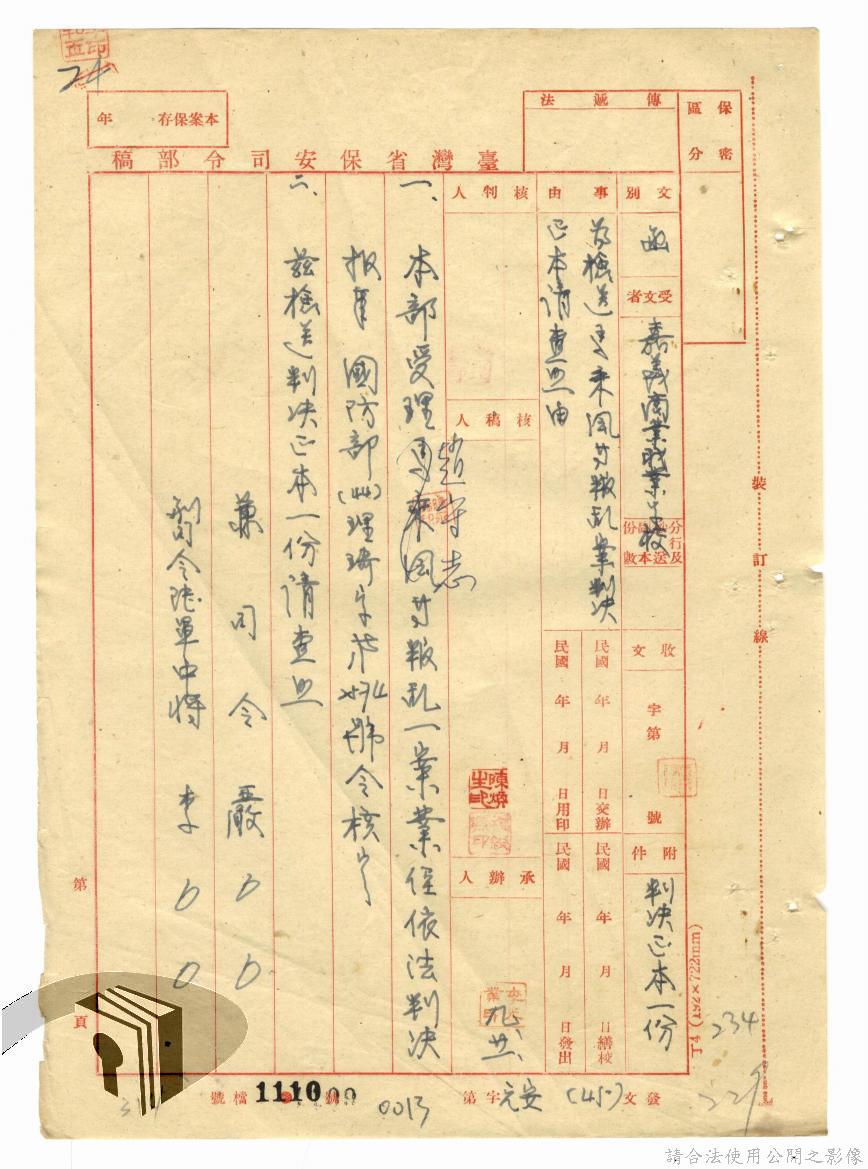 24
本案保存 年
傳遞法
保密區分
臺灣省保安司令部稿
文別
函
受文者
嘉義商業職業學校
分行及份送本數
事由
為檢送馬來風等叛乱案判決
正本請查照由
核判人
核稿人
趙守志
承辦人
收文 字第 號
附件
判决正本一份
民國 年 月 日交辦
民國 年 月 日用印
民國 年 月 日繕校
民國 年 月 日發出
陳煥生印
一、本部受理馬來風等叛乱一案業經依法判决
報奉國防部(44)理琦字第 號令核
二、茲檢送判决正本一份請查照
兼司令嚴００
副司令陸軍中將李００
裝訂線
第 頁
T4 (192×722mm)
234
229
發文(45)安元字第0013號
檔號
111000
請合法使用公開之影像